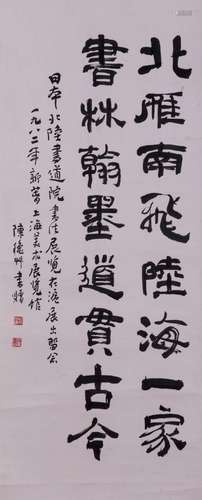 北雁南飛陸海一家
書林翰墨道貫古今
日本北陸書道院書法展覽在滬展出留念
一九八二年新春上海美术展览馆
陳德